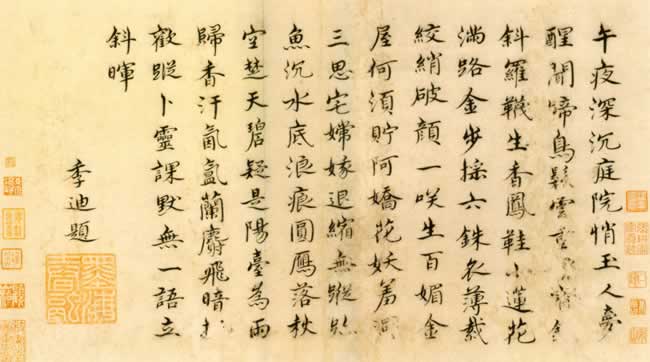 午夜深沉庭院悄玉人夢
醒聞啼鳥鬆雲
斜羅襪生香鳳鞋小蓮花
滿路金步採六銖衣薄裁
絞綃破顔一咲生百媚金
屋何須貯阿嬌花妖羞
三思宅嫦嫁退縮無蹤跡
魚沉水底浪痕圓鴈落秋
空楚天碧疑是陽臺為雨
歸香汗氤氳蘭麝飛暗
歡蹤卜靈課默無一語立
斜暉
季迪題